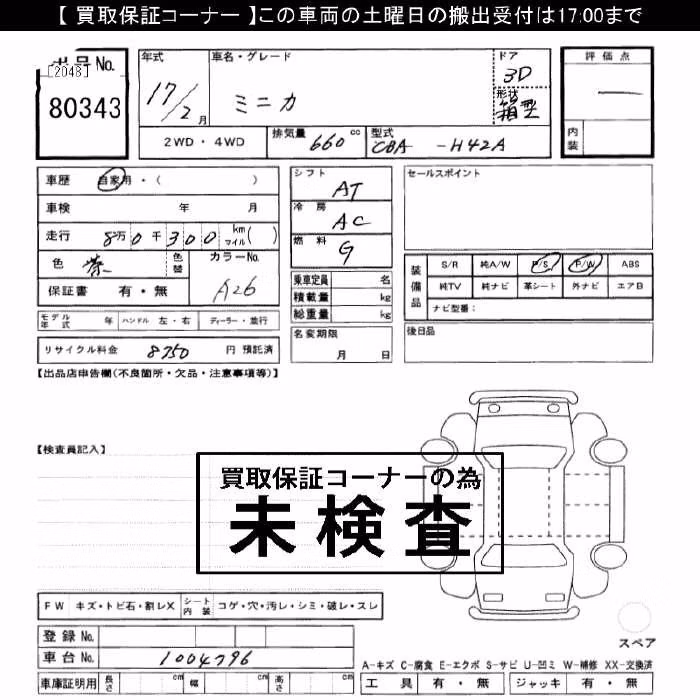 【 買取保証コーナー 】この車両の土曜日の搬出受付は17:00まで
[2048]
80343
年式 17/2月
車名・グレード ミニカ
ドア 3D
形状 箱型
評価点 —
内装
2WD・4WD
排気量 660 cc
型式 CBA - H42A
車歴 自家用・( )
車検 年 月
走行 8万0千300 km マイル( )
色 茶 色替
カラーNo. A26
保証書 有・無
モデル年式 年 ハンドル 左・右 ディーラー・並行
リサイクル料金 8750 円 預託済
シフト AT
冷房 AC
燃料 G
乗車定員 名
積載量 kg
総重量 kg
名変期限 月 日
セールスポイント
装備品 S/R 純A/W P/S P/W ABS
純TV 純ナビ 革シート 外ナビ エアB
ナビ型番:
後日品
【出品店申告欄(不良箇所・欠品・注意事項等)】
【検査員記入】
買取保証コーナーの為
未検査
FW キズ・トビ石・割レX シート内装 コゲ・穴・汚レ・シミ・破レ・スレ
登録No.
車台No. 1004796
車庫証明用 長さ cm 幅 cm 高さ cm
スペア
A-キズ C-腐食 E-エクボ S-サビ U-凹ミ W-補修 XX-交換済
工具 有・無 ジャッキ 有・無